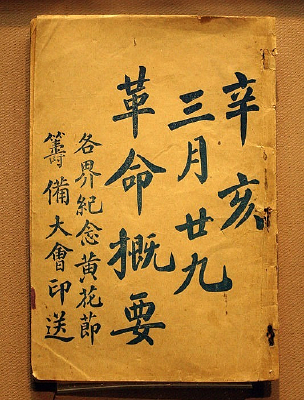 辛亥
三月廿九
革命概要
各界紀念黃花節
籌備大會印送